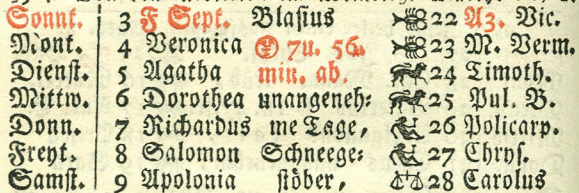 Sonnt. 3 F Sept. Blasius 22 Az. Vic.
Mont. 4 Veronica 7u. 56. 23 M. Verm.
Dienst. 5 Agatha min. ab. 24 Timoth.
Mittw. 6 Dorothea unangeneh⸗ 25 Pul. B.
Donn. 7 Richardus me Tage, 26 Policarp.
Freyt. 8 Salomon Schneege⸗ 27 Chrys.
Samst. 9 Apolonia stöber, 28 Carolus